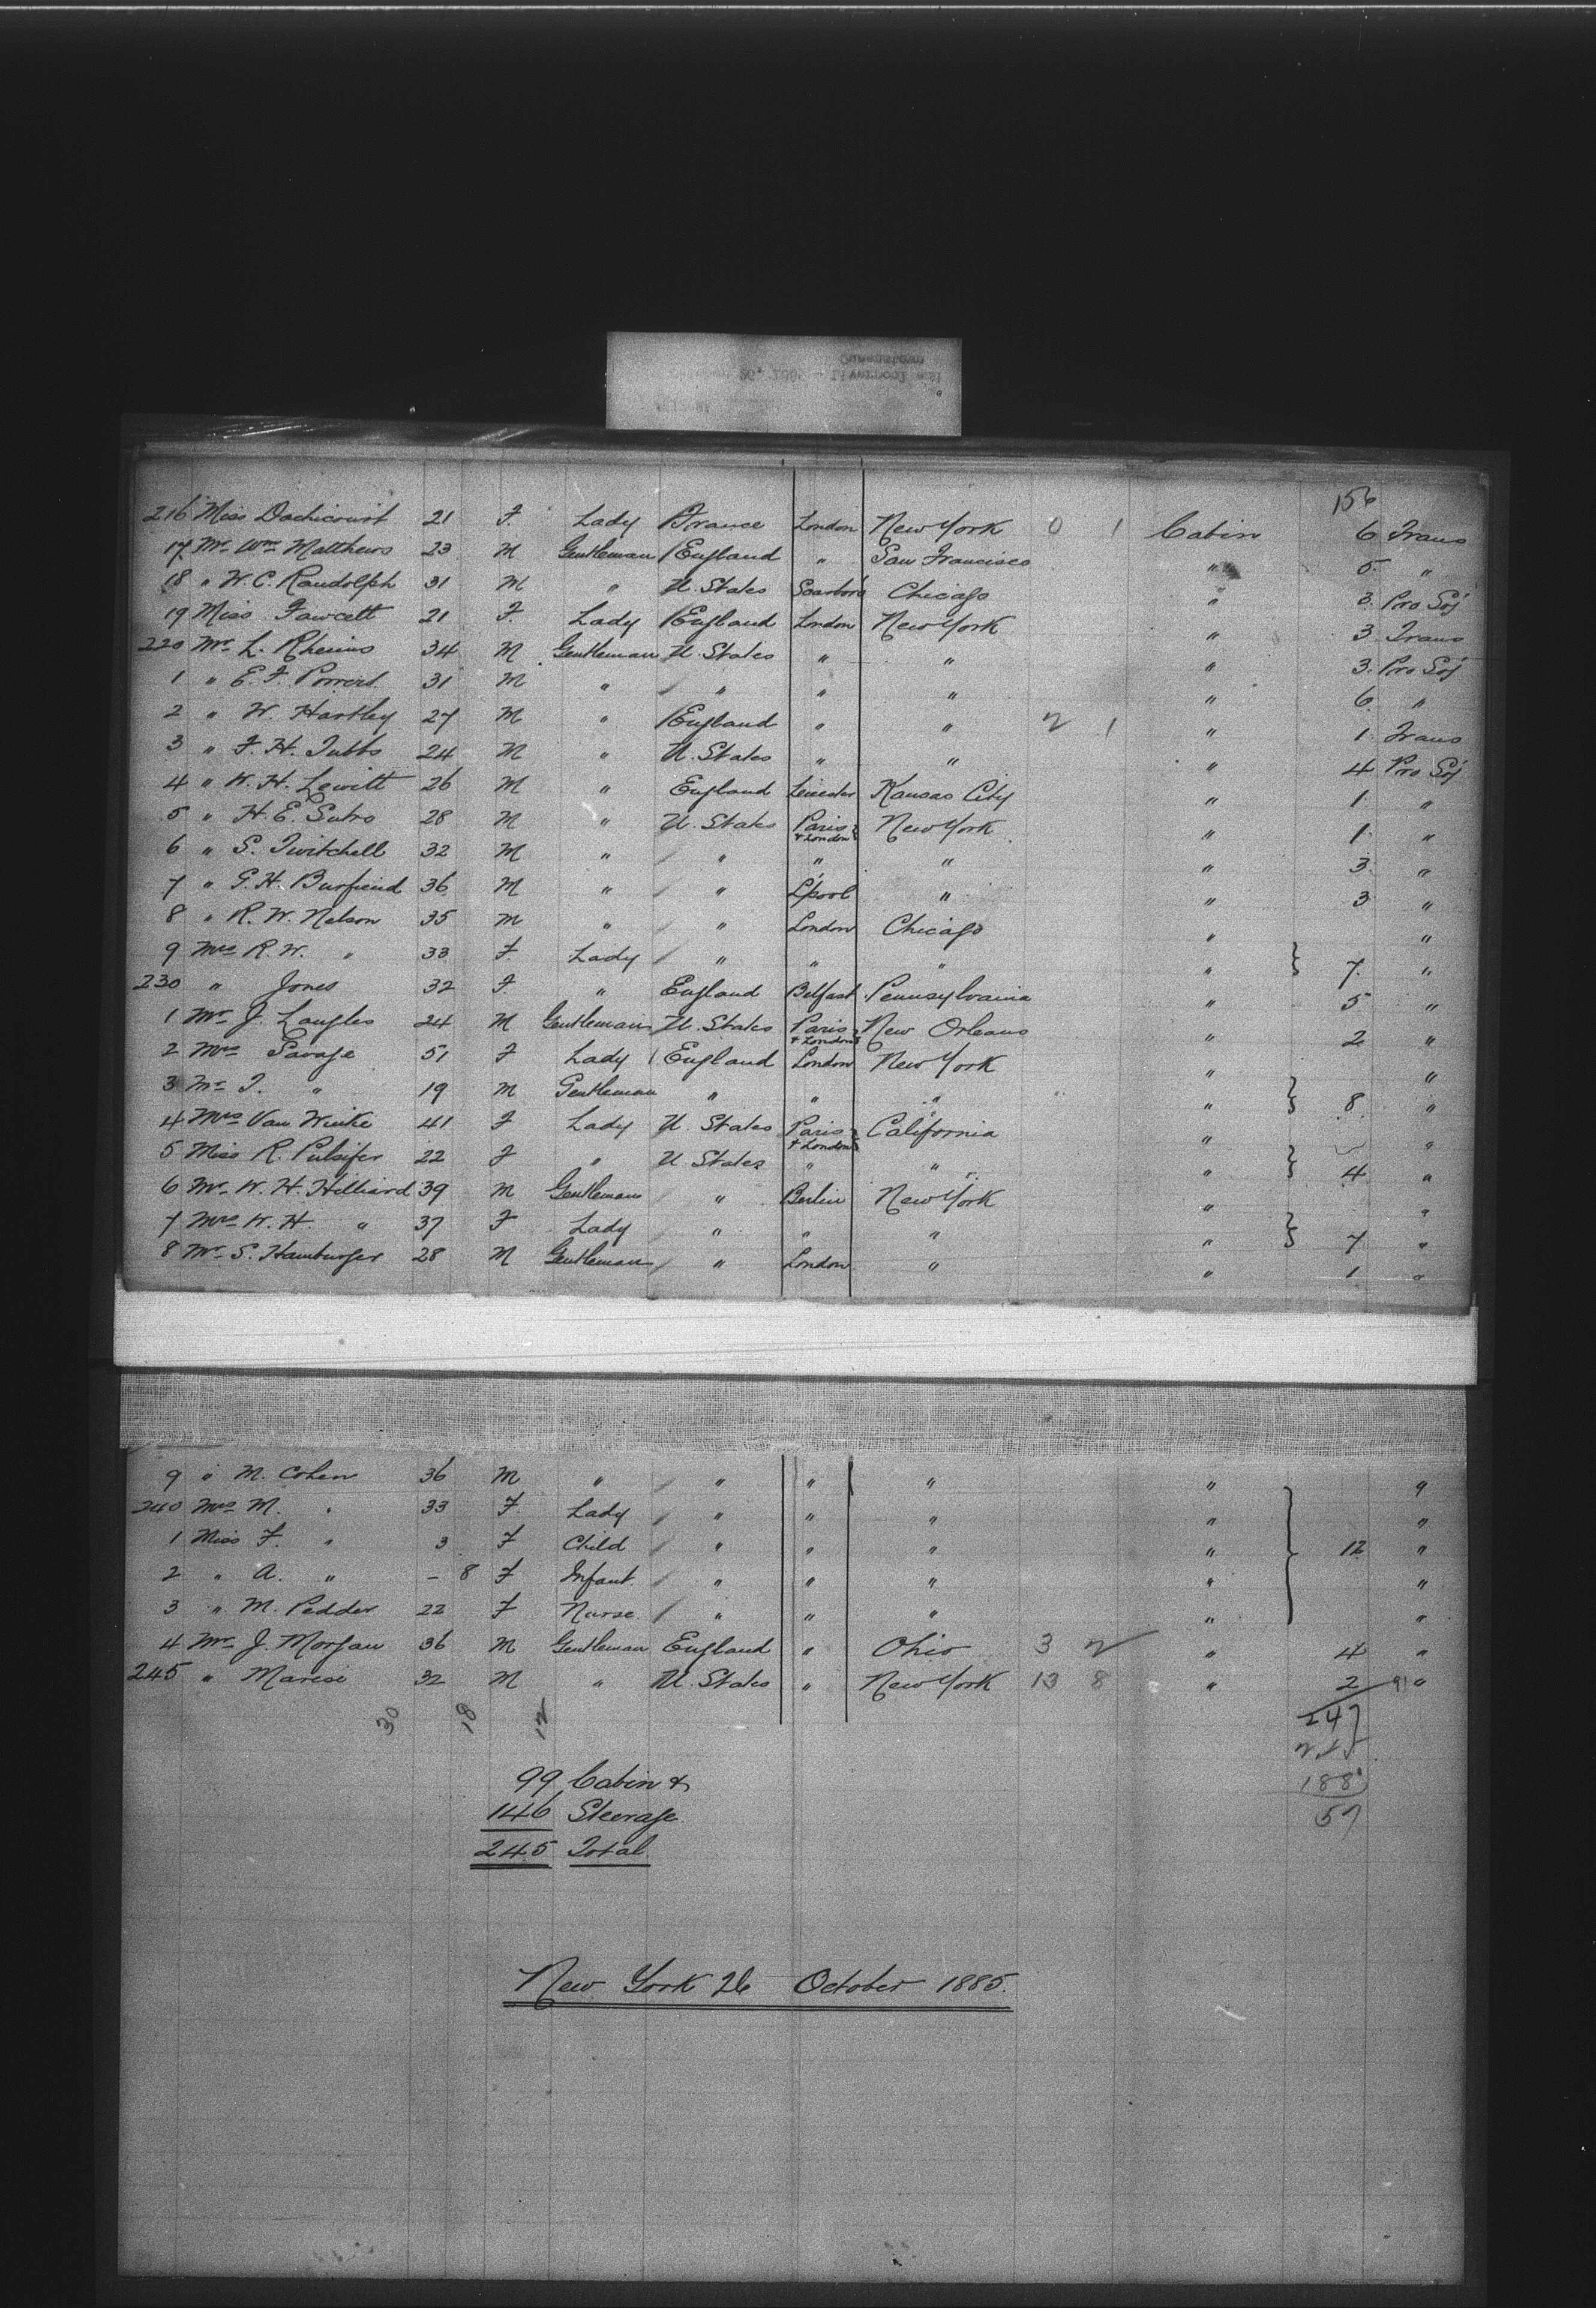 156
216 Miss Dachicourt 21 F. Lady France London New York 0 1 Cabin 6 Trans
17 Mr Wm Matthews 23 M Gentleman England " San Francisco " 5 "
18 " W. C. Randolph 31 M " U. States Scarboro Chicago " 3 Pro Soj
19 Miss Fawcett 21 F. Lady England London New York " 3 Trans
220 Mr L. Rheims 34 M Gentleman U. States " " " 3 Pro Soj
1 " E. F. 31 M " " " " " 6 "
2 " W. Hartley 27 M " England " " 2 1 " 1 Trans
3 " F. H. Tubbs 24 M " U. States " " " 4 Pro Soj
4 " W. H. Lewitt 26 M " England Leicester Kansas City " 1 "
5 " H. E. Sutro 28 M " U. States Paris & London } New York " 1 "
6 " S. Twitchell 32 M " " " " " 3 "
7 " G. H. Burfiend 36 M " " L'pool " " 3 "
8 " R. W. Nelson 35 M " " London Chicago " "
9 Mrs R. W. " 33 F. Lady " " " " } 7 "
230 " Jones 32 F. " England Belfast Pennsylvania " 5 "
1 Mr J. Langles 24 M Gentleman U. States Paris & London } New Orleans " 2 "
2 Mrs Savage 51 F Lady England London New York " "
3 Mr T. " 19 M Gentleman " " " " } 8 "
4 Mrs Van Winke 41 F Lady U. States Paris & London } California " "
5 Miss R. Pulsifer 22 F " U. States " " " } 4 "
6 Mr W. H. Hilliard 39 M Gentleman " Berlin New York " "
7 Mrs W. H. " 37 F Lady " " " " } 7 "
8 Mr S. Hamburger 28 M Gentleman " London " " 1 "
9 " M. Cohen 36 M " " " " " "
240 Mrs M. " 33 F Lady " " " " "
1 Miss F. " 3 F Child " " " " } 12 "
2 " A. " – 8 F Infant " " " " "
3 " M. Pedder 22 F Nurse " " " " "
4 Mr J. Morgan 36 M Gentleman England " Ohio 3 2 " 4 "
245 " Maresi 32 M " U. States " New York 13 8 " 2 "
30 18 12
247
245
188
57
99 Cabin &
146 Steerage
245 Total
New York 26 October 1885.